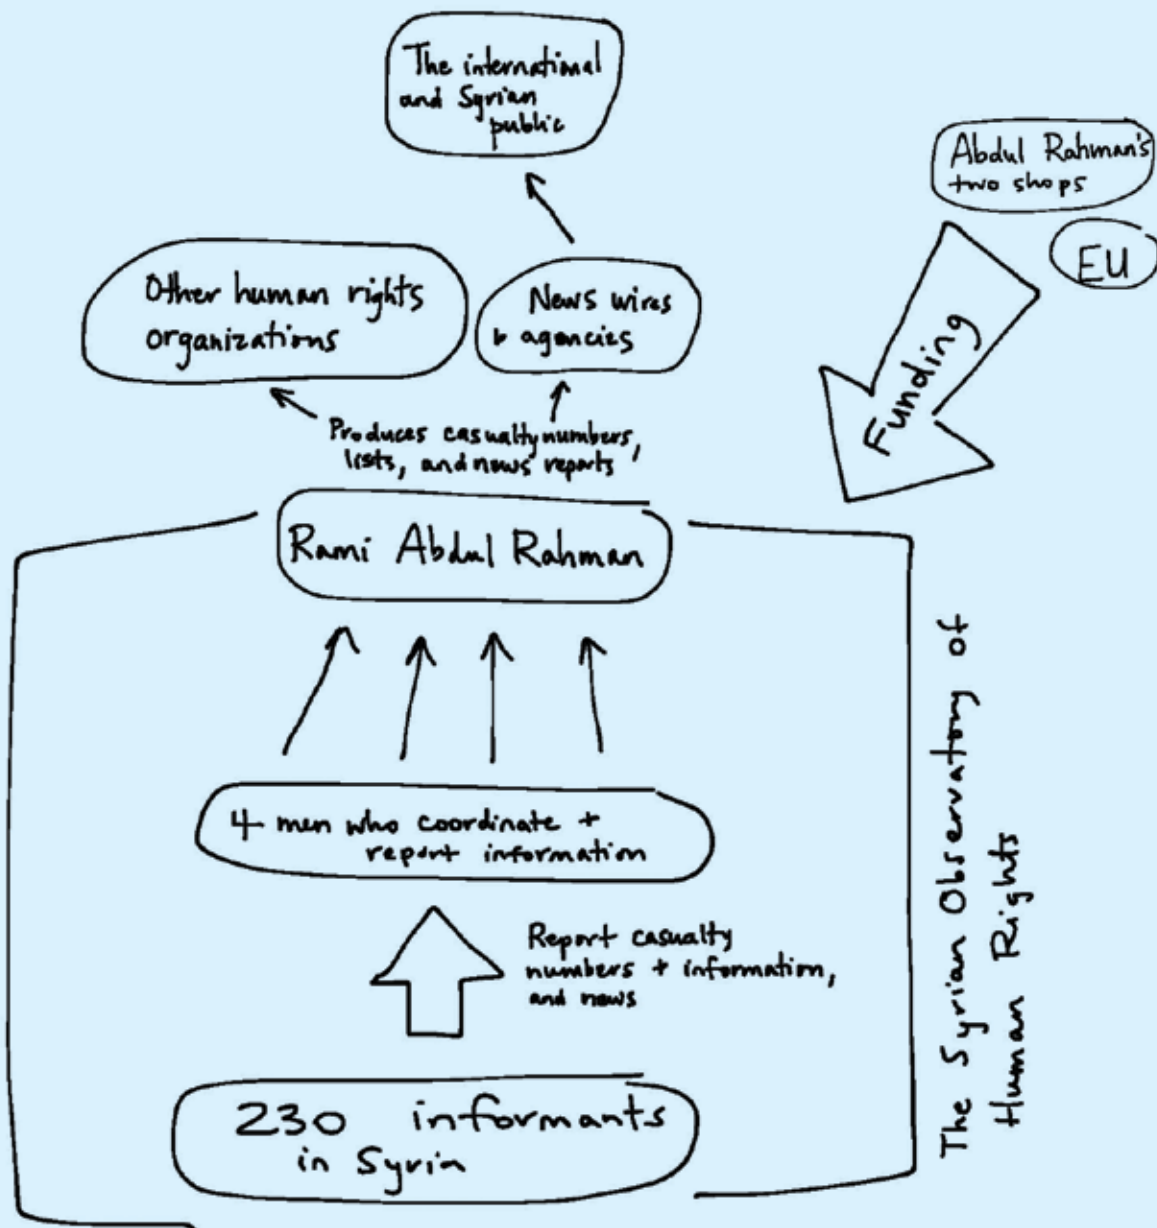 The international
and Syrian
public
Abdul Rahman's
two shops
EU
Funding
Other human rights
organizations
News wires
+ agencies
Produces casualty numbers,
lists, and news reports
Rami Abdul Rahman
4 men who coordinate +
report information
Report casualty
numbers + information,
and news
230 informants
in Syria
The Syrian Observatory of
Human Rights